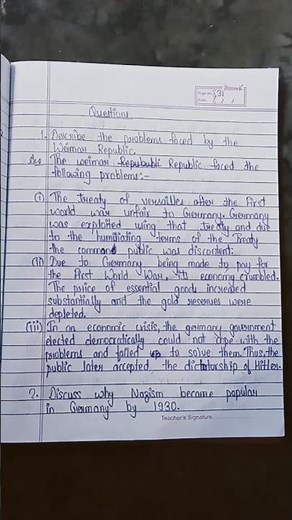 Page No. 31
Date
Questions
1. Describe the problems faced by the
Weimar Republic.
Ans The weimar Republic faced the
following problems:-
(i) The treaty of versailles after the First
world war unfair to Germany. Germany
was exploited using that treaty and due
to the humiliating terms of the Treaty
the common public was discontent.
(ii) Due to Germany being made to pay for
the First World War, its economy crumbled.
The price of essential goods increased
substantially and the gold reserves were
depleted.
(iii) In an economic crisis, the germany government
elected democratically could not cope with the
problems and failed to solve them. Thus, the
public later accepted the dictatorship of Hitler.
2. Discuss why Nazism became popular
in Germany by 1930.
Teacher's Signature